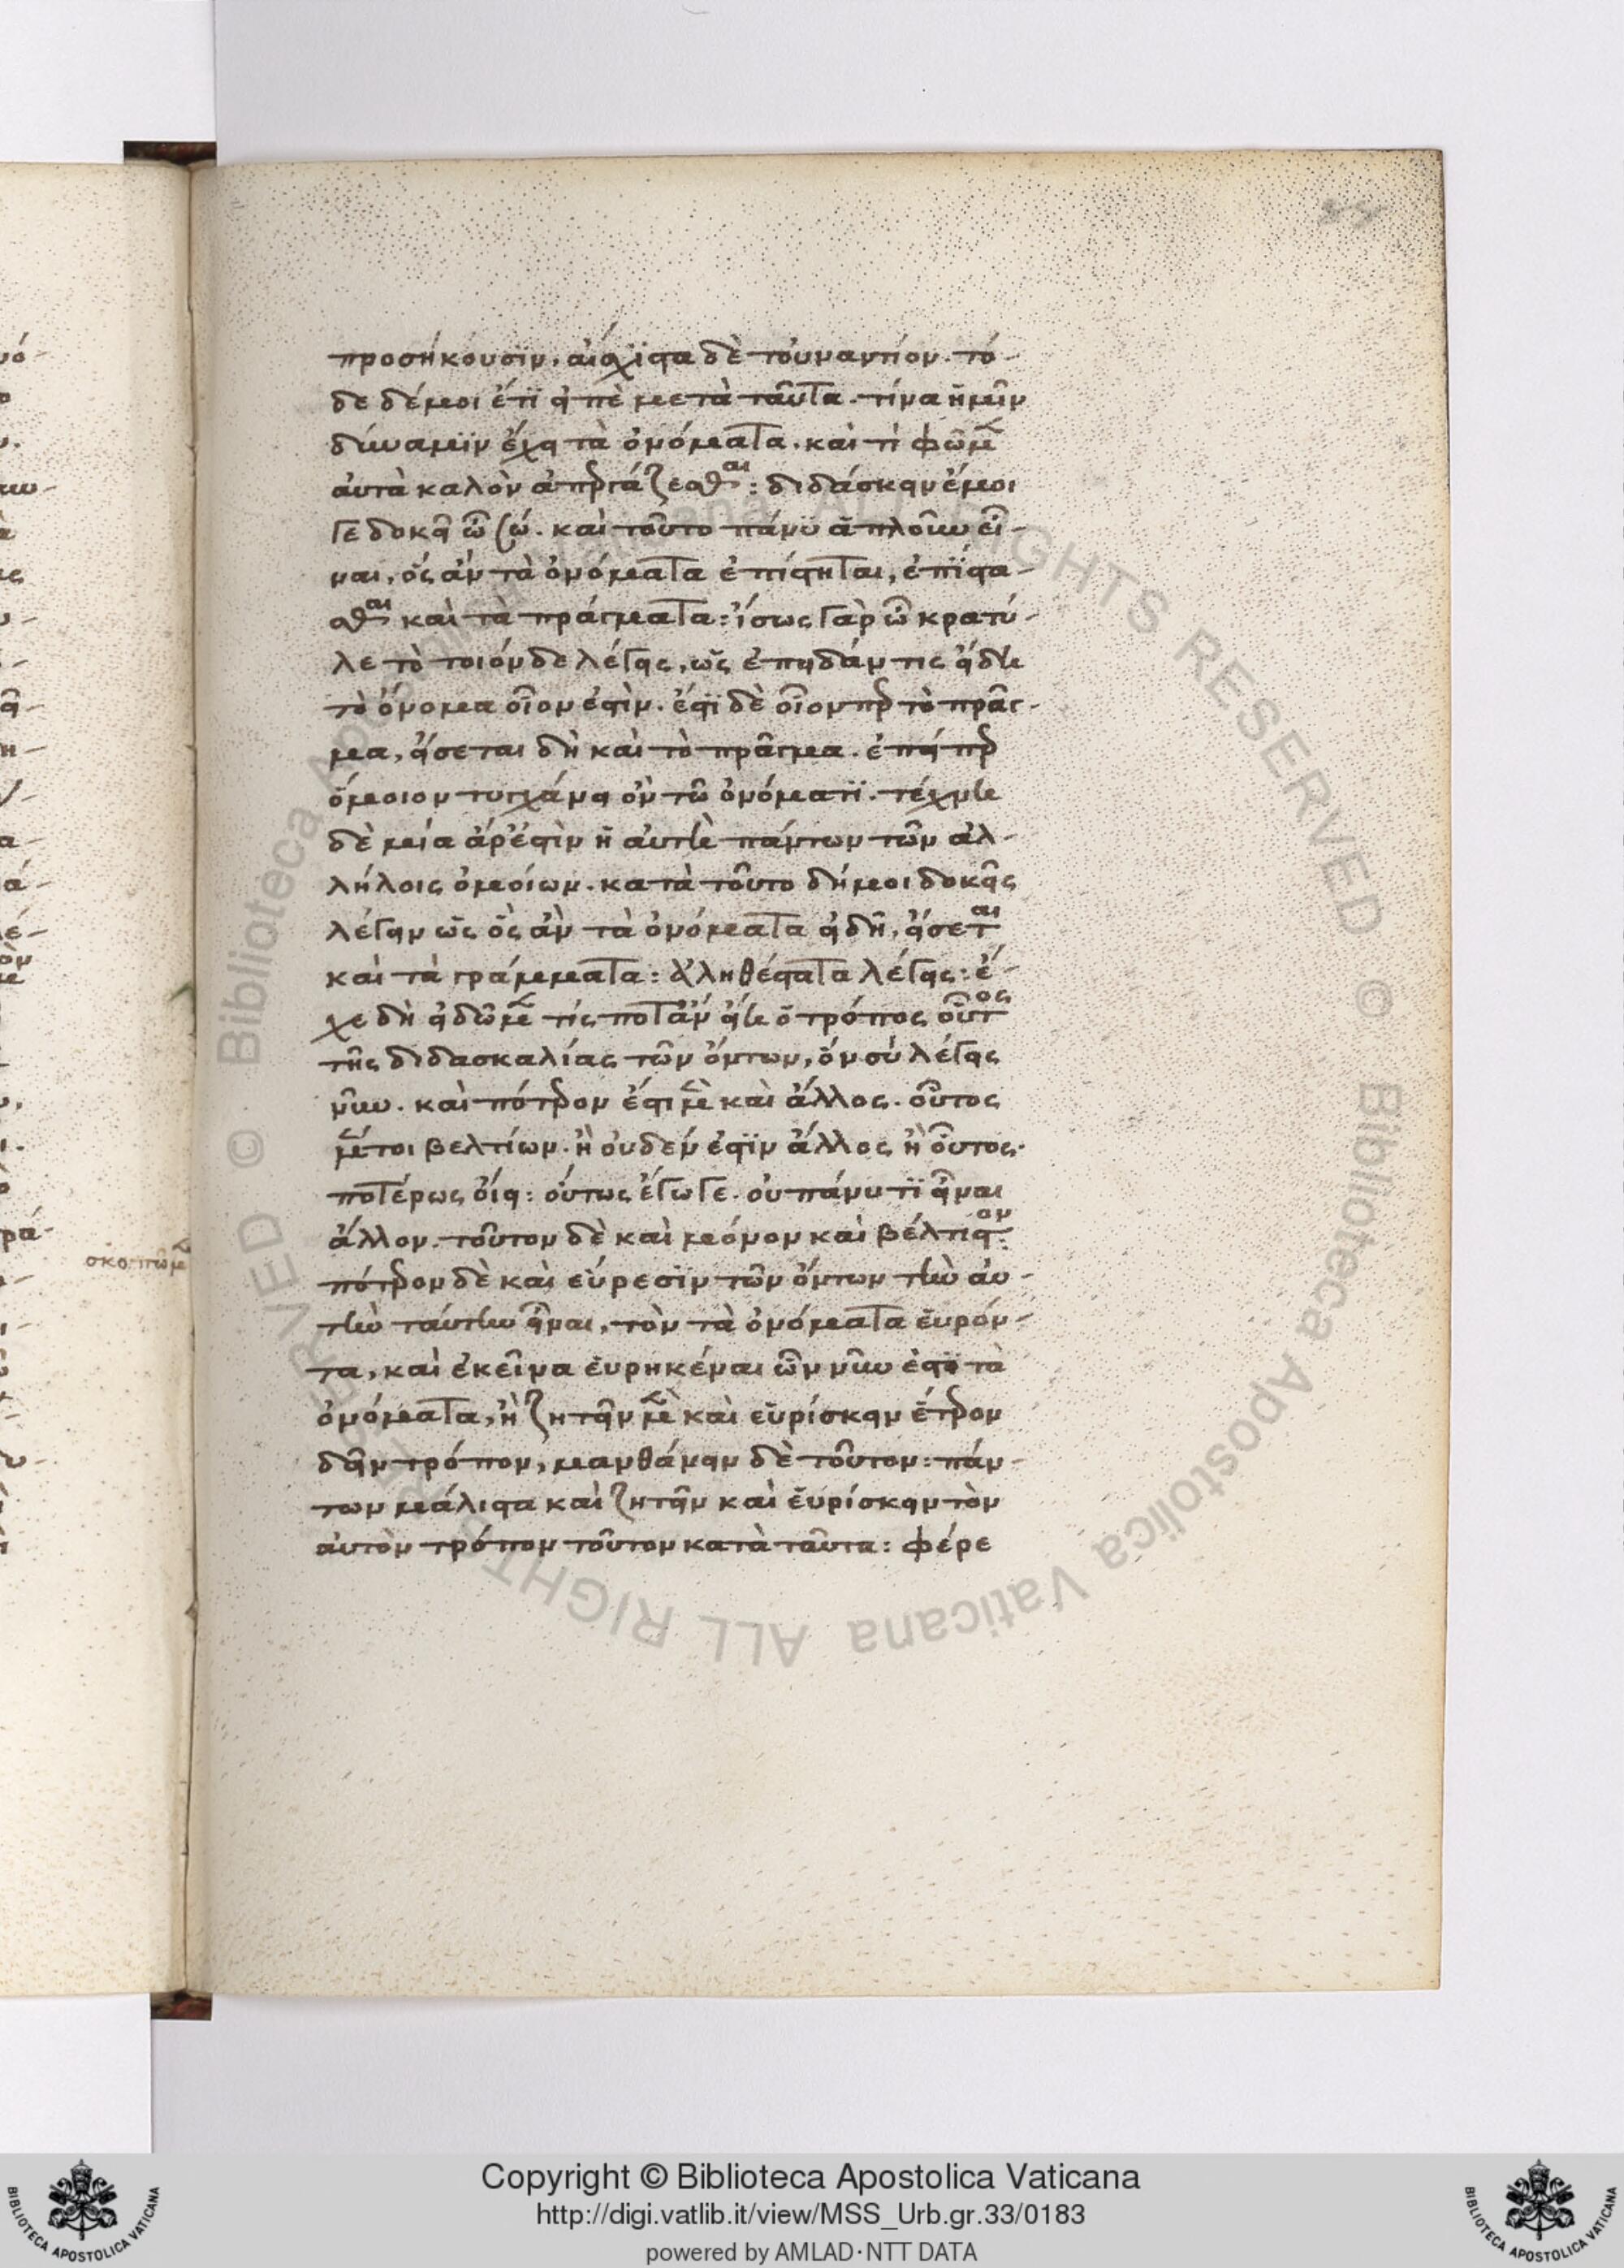 προσήκουσϊν, αἴσχϊστα δὲ τοὐναντίον. τό-
δε δέ μοι ἔτϊ εἰπὲ μετὰ ταῦτα. τίνα ἡμῖν
δύναμϊν ἔχει τὰ ὀνόματα. καὶ τί φῶμεν
αὐτὰ καλὸν ἀπεργάζεσθαι: διδάσκειν ἔμοι
γε δοκεῖ ὦ σώ. καὶ τοῦτο πάνϋ ἁπλοῦν εἶ-
ναι, ὃς ἂν τὰ ὀνόματα ἐπίστηται, ἐπϊστα-
σθαι καὶ τὰ πράγματα: ἴσως γὰρ ὦ κρατύ-
λε τὸ τοιόνδε λέγεις, ὡς ἐπειδάν τις εἴδη
τὸ ὄνομα οἷον ἐστὶν. ἔστϊ δὲ οἷον περ τὸ πρᾶγ-
μα, εἴσεται δὴ καὶ τὸ πρᾶγμα. ἐπείπερ
ὅμοιον τυγχάνει ὂν τῶ ὀνόματϊ. τέχνη
δὲ μία ἄρ' ἐστὶν ἡ αὐτὴ πάντων τῶν ἀλ-
λήλοις ὁμοίων. κατὰ τοῦτο δή μοι δοκεῖς
λέγειν ὡς ὃς ἂν τὰ ὀνόματα εἰδῆ, εἴσεται
καὶ τὰ γράμματα: ἀληθέστατα λέγεις: ἔ-
χε δὴ εἰδῶμεν τίς ποτ' ἂν εἴη ὁ τρόπος οὗτος
τῆς διδασκαλίας τῶν ὄντων, ὃν σὺ λέγεις
νῦν. καὶ πότερον ἔστι μὲν καὶ ἄλλος. οὗτος
μέντοι βελτίων. ἢ οὐδέν ἐστϊν ἄλλος ἢ οὗτος.
ποτέρως οἴει: οὕτως ἔγωγε. οὐ πάνυ τϊ εἶναι
ἄλλον. τοῦτον δὲ καὶ μόνον καὶ βέλτιστον:
πότερον δὲ καὶ εὕρεσϊν τῶν ὄντων τὴν αὐ-
τὴν ταύτην εἶναι, τὸν τὰ ὀνόματα εὑρόν-
τα, καὶ ἐκεῖνα εὑρηκέναι ὧν νῦν ἐστϊ τὰ
ὀνόματα, ἢ ζητεῖν μὲν καὶ εὑρίσκειν ἕτερον
δεῖν τρόπον, μανθάνειν δὲ τοῦτον: πάν-
των μάλιστα καὶ ζητεῖν καὶ εὑρίσκειν τὸν
αὐτὸν τρόπον τοῦτον κατὰ ταῦτα: φέρε
σκοπῶμεν
Copyright © Biblioteca Apostolica Vaticana
http://digi.vatlib.it/view/MSS_Urb.gr.33/0183
powered by AMLAD·NTT DATA